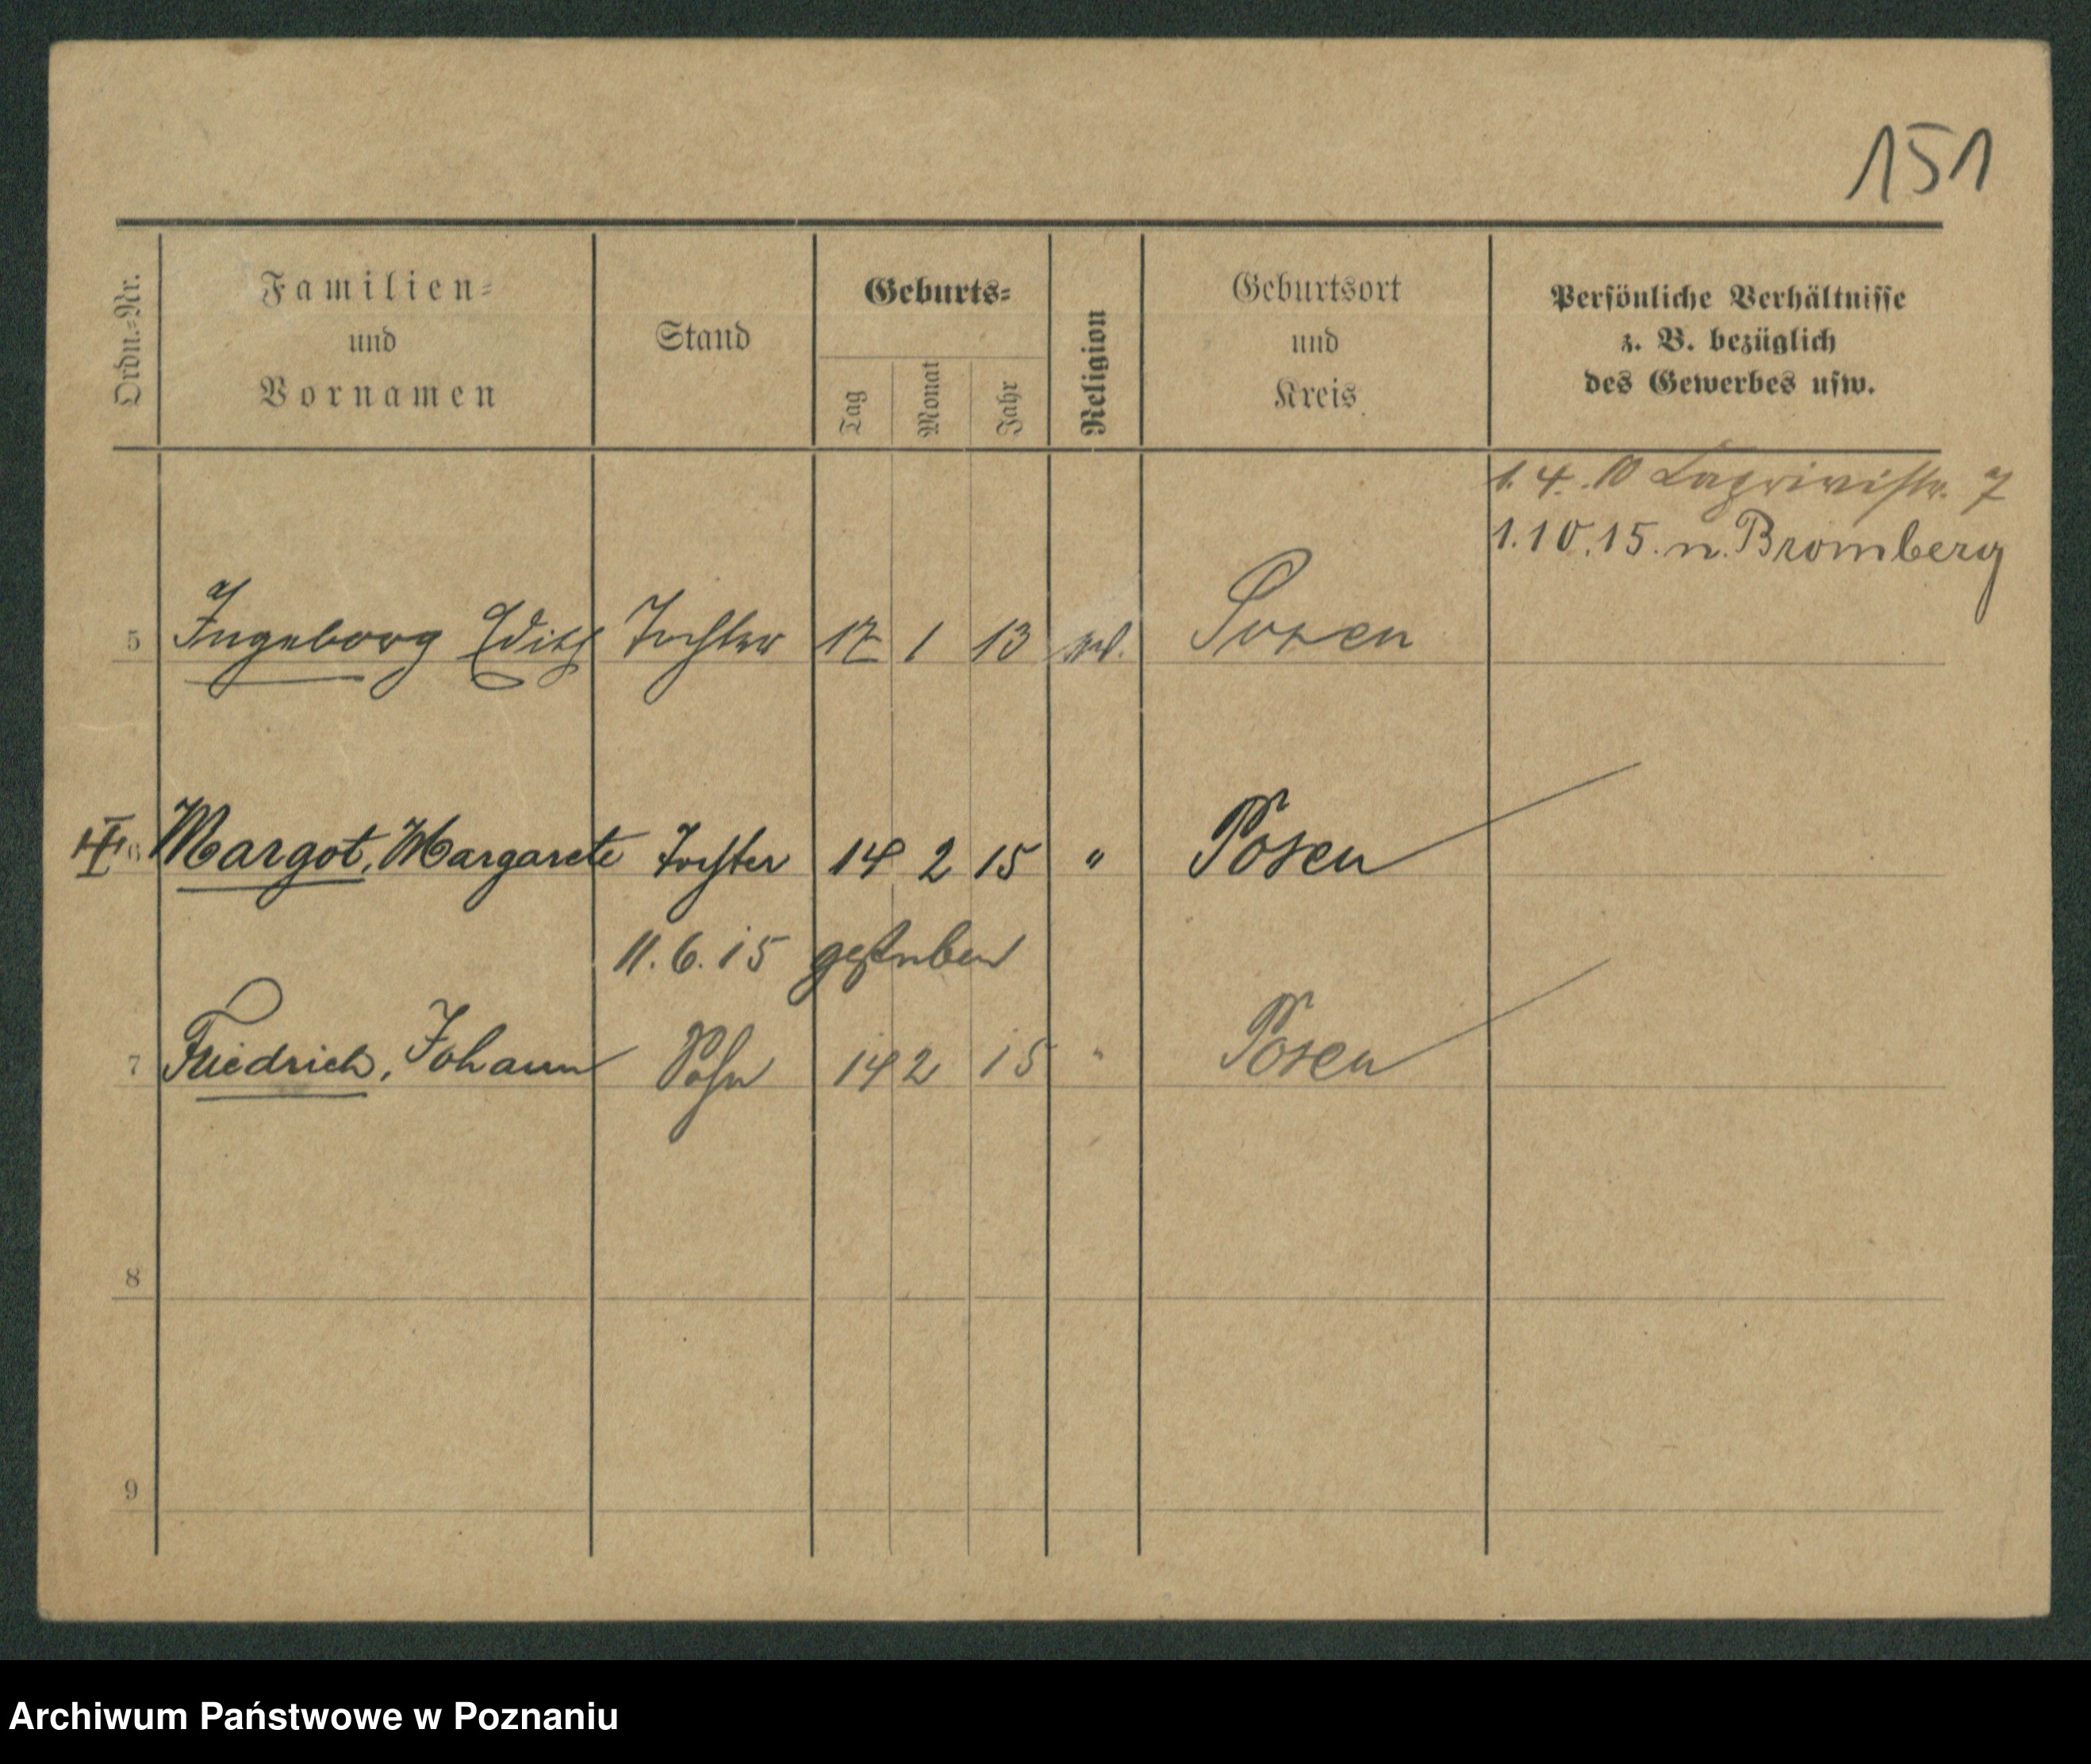 151
Ordn.-Nr.
Familien-
und
Vornamen
Stand
Geburts-
Tag
Monat
Jahr
Religion
Geburtsort
und
Kreis
Persönliche Verhältnisse
z. B. bezüglich
des Gewerbes usw.
1. 4. 10 7
1.10.15. n. Bromberg
5 Ingeborg Edith Tochter 17 1 13 Posen
Margot, Margarete Tochter 14 2 15 " Posen
11. 6. 15 gestorben
7 Friedrich, Johann Sohn 14 2 15 " Posen
8
9
Archiwum Państwowe w Poznaniu